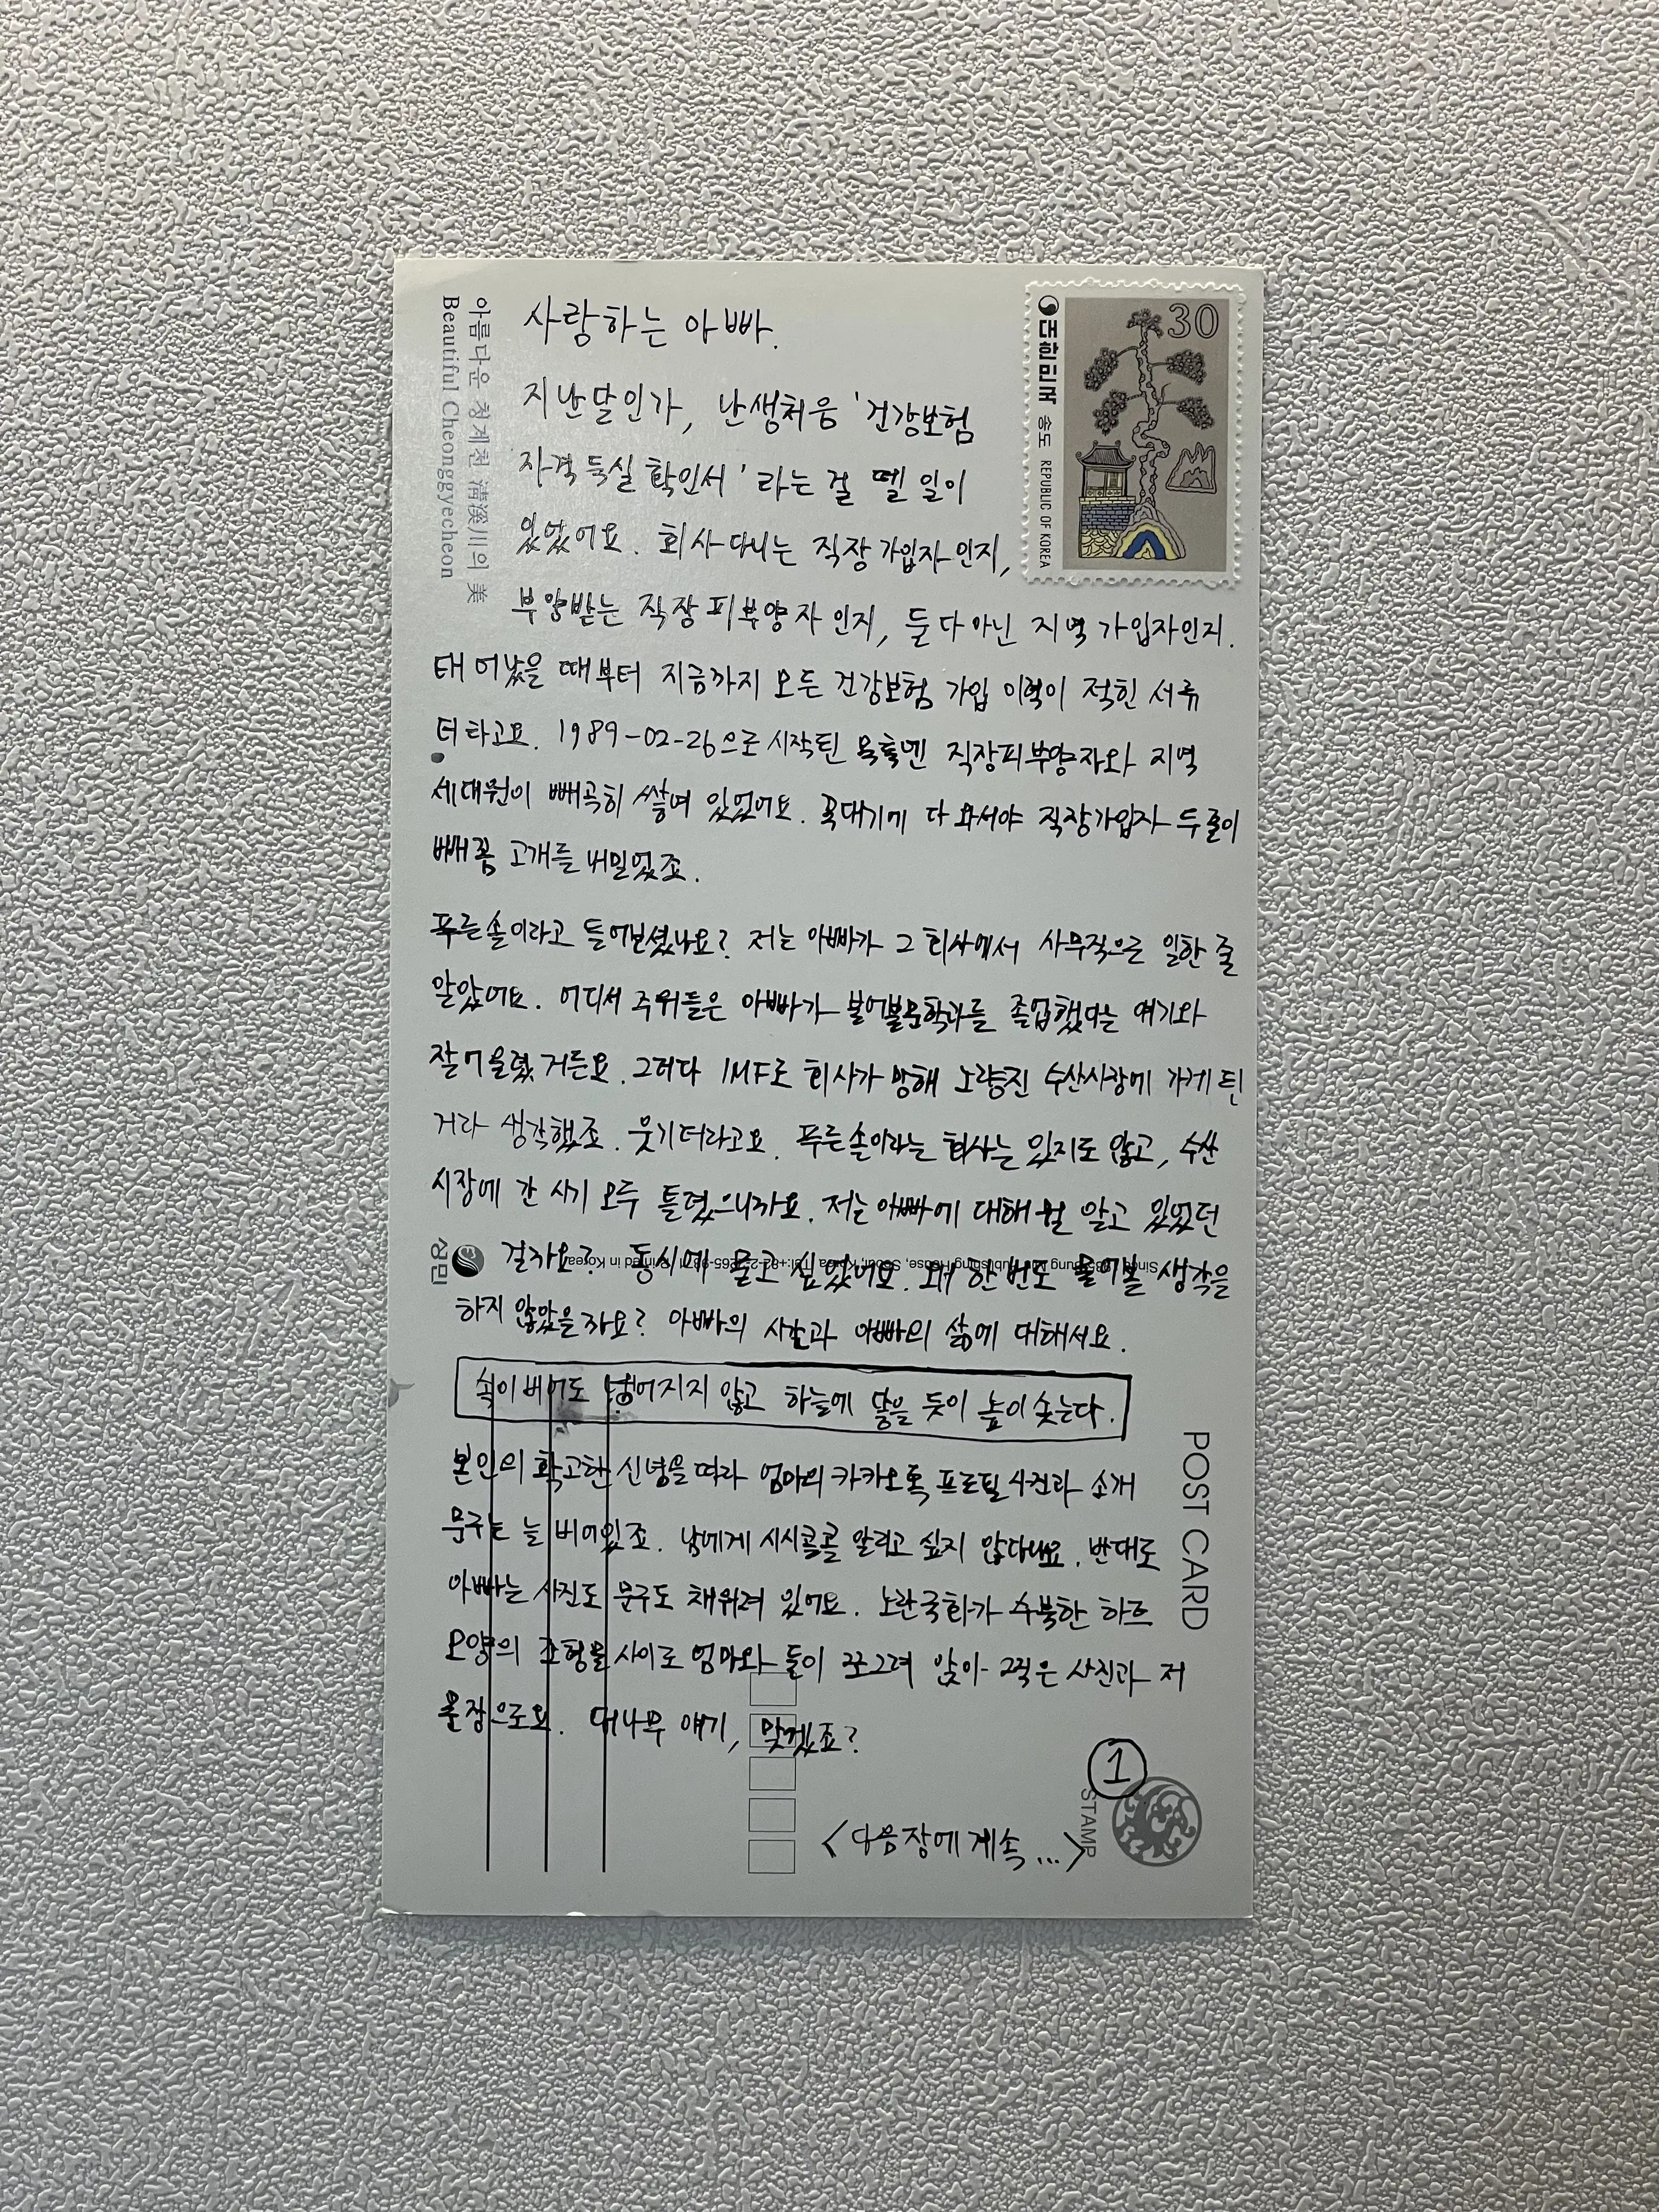 사랑하는 아빠.
지난달인가, 난생처음 '건강보험
자격득실 확인서'라는 걸 뗄 일이
있었어요. 회사다니는 직장가입자인지,
부양받는 직장피부양자인지, 둘다아닌 지역가입자인지.
태어났을 때부터 지금까지 모든 건강보험 가입 이력이 적힌 서류
더라고요. 1989-02-26으로 시작된 목록엔 직장피부양자와 지역
세대원이 빼곡히 쌓여 있었어요. 꼭대기에 다 와서야 직장가입자 두줄이
빼꼼 고개를 내밀었죠.
푸른솔이라고 들어보셨나요? 저는 아빠가 그 회사에서 사무직으로 일한 줄
알았어요. 어디서 주워들은 아빠가 불어불문학과를 졸업했다는 얘기와
잘어울렸거든요. 그러다 IMF로 회사가 망해 노량진 수산시장에 가게 된
거라 생각했죠. 웃기더라고요. 푸른솔이라는 회사는 있지도 않고, 수산
시장에 간 시기 모두 틀렸으니까요. 저는 아빠에 대해 뭘 알고 있었던
걸까요? 동시에 묻고 싶었어요. 왜 한번도 물어볼 생각을
하지 않았을까요? 아빠의 사업과 아빠의 삶에 대해서요.
속이 비어도 넘어지지 않고 하늘에 닿을 듯이 높이 솟는다.
본인의 확고한 신념을 따라 엄마의 카카오톡 프로필 사진과 소개
문구는 늘 비어있죠. 남에게 시시콜콜 알리고 싶지 않다네요. 반대로
아빠는 사진도 문구도 채워져 있어요. 노란국화가 수북한 하트
모양의 조형물 사이로 엄마와 둘이 쪼그려 앉아 찍은 사진과 저
문장으로요. 대나무 얘기, 맞겠죠?
<다음장에 계속...>
①
아름다운 청계천 淸溪川의 美
Beautiful Cheonggyecheon
30
대한민국 송도 REPUBLIC OF KOREA
성민
Publishing House, Seoul, Korea Printed in Korea
POST CARD
STAMP